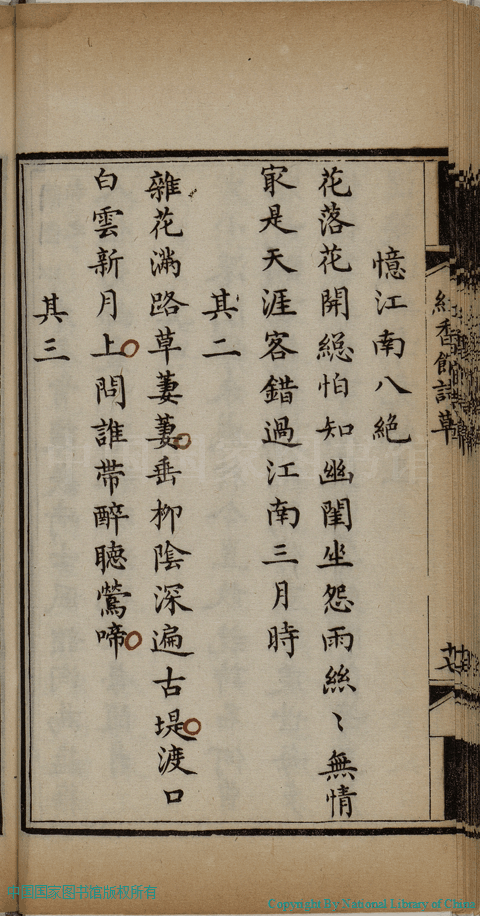 憶江南八絕
花落花開緫怕知幽閨坐怨雨絲〻無情
㝡是天涯客錯過江南三月時
其二
雜花滿路草萋萋垂柳陰深遍古堤渡口
白雲新月上問誰帶醉聽鶯啼
其三
紅香館詩草
中国国家图书馆
中国国家图书馆版权所有
Copyright By National Library of China